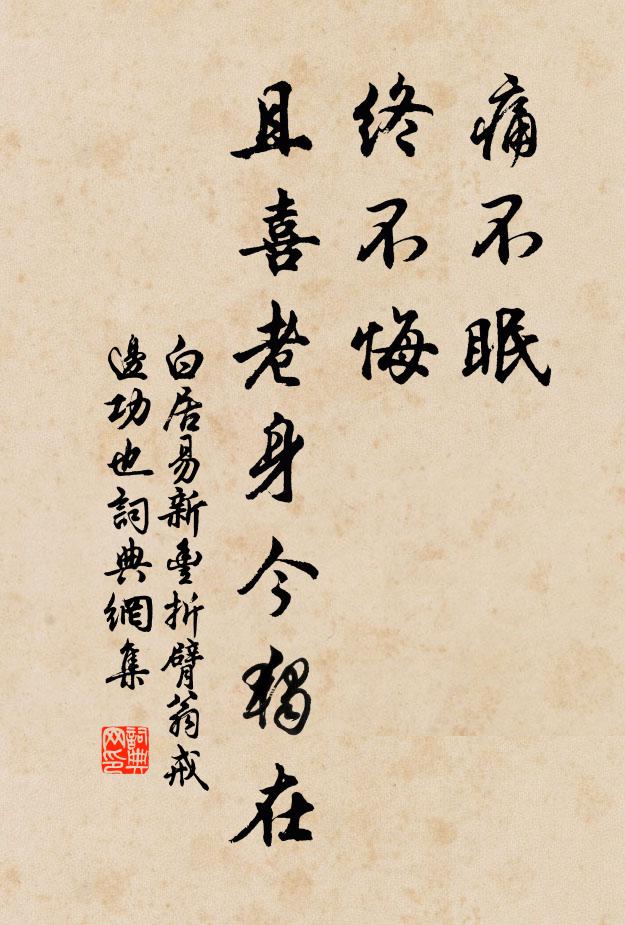 痛不眠
終不悔
且喜老身今獨在
白居易新豐折臂翁戒
邊功也詞典網集
詞典網印